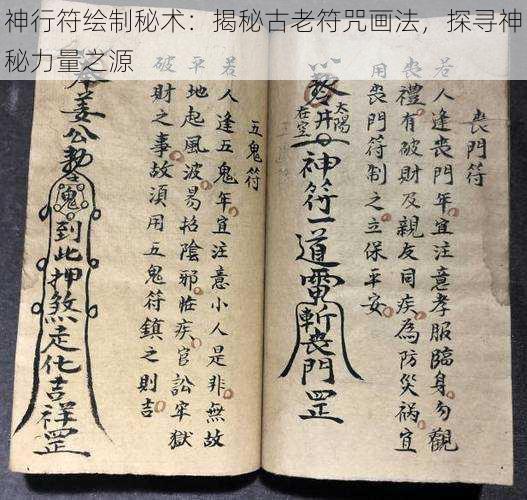 神行符绘制秘术：揭秘古老符咒画法，探寻神
秘力量之源
喪門符
若人逢喪門年宜注意孝服臨身勿觀
喪禮有破財及親友同疾為防災禍宜
用喪門符制之立保平安
太陽
在空
神符一道雷斬喪門罡
五鬼符
若人逢五鬼年宜注意小人是非無故
平地起風波易招陰邪臨疾官訟牢獄
破財之事故須用五鬼符鎮之則吉
奉姜公勅
鬼
到此押煞走化吉祥罡